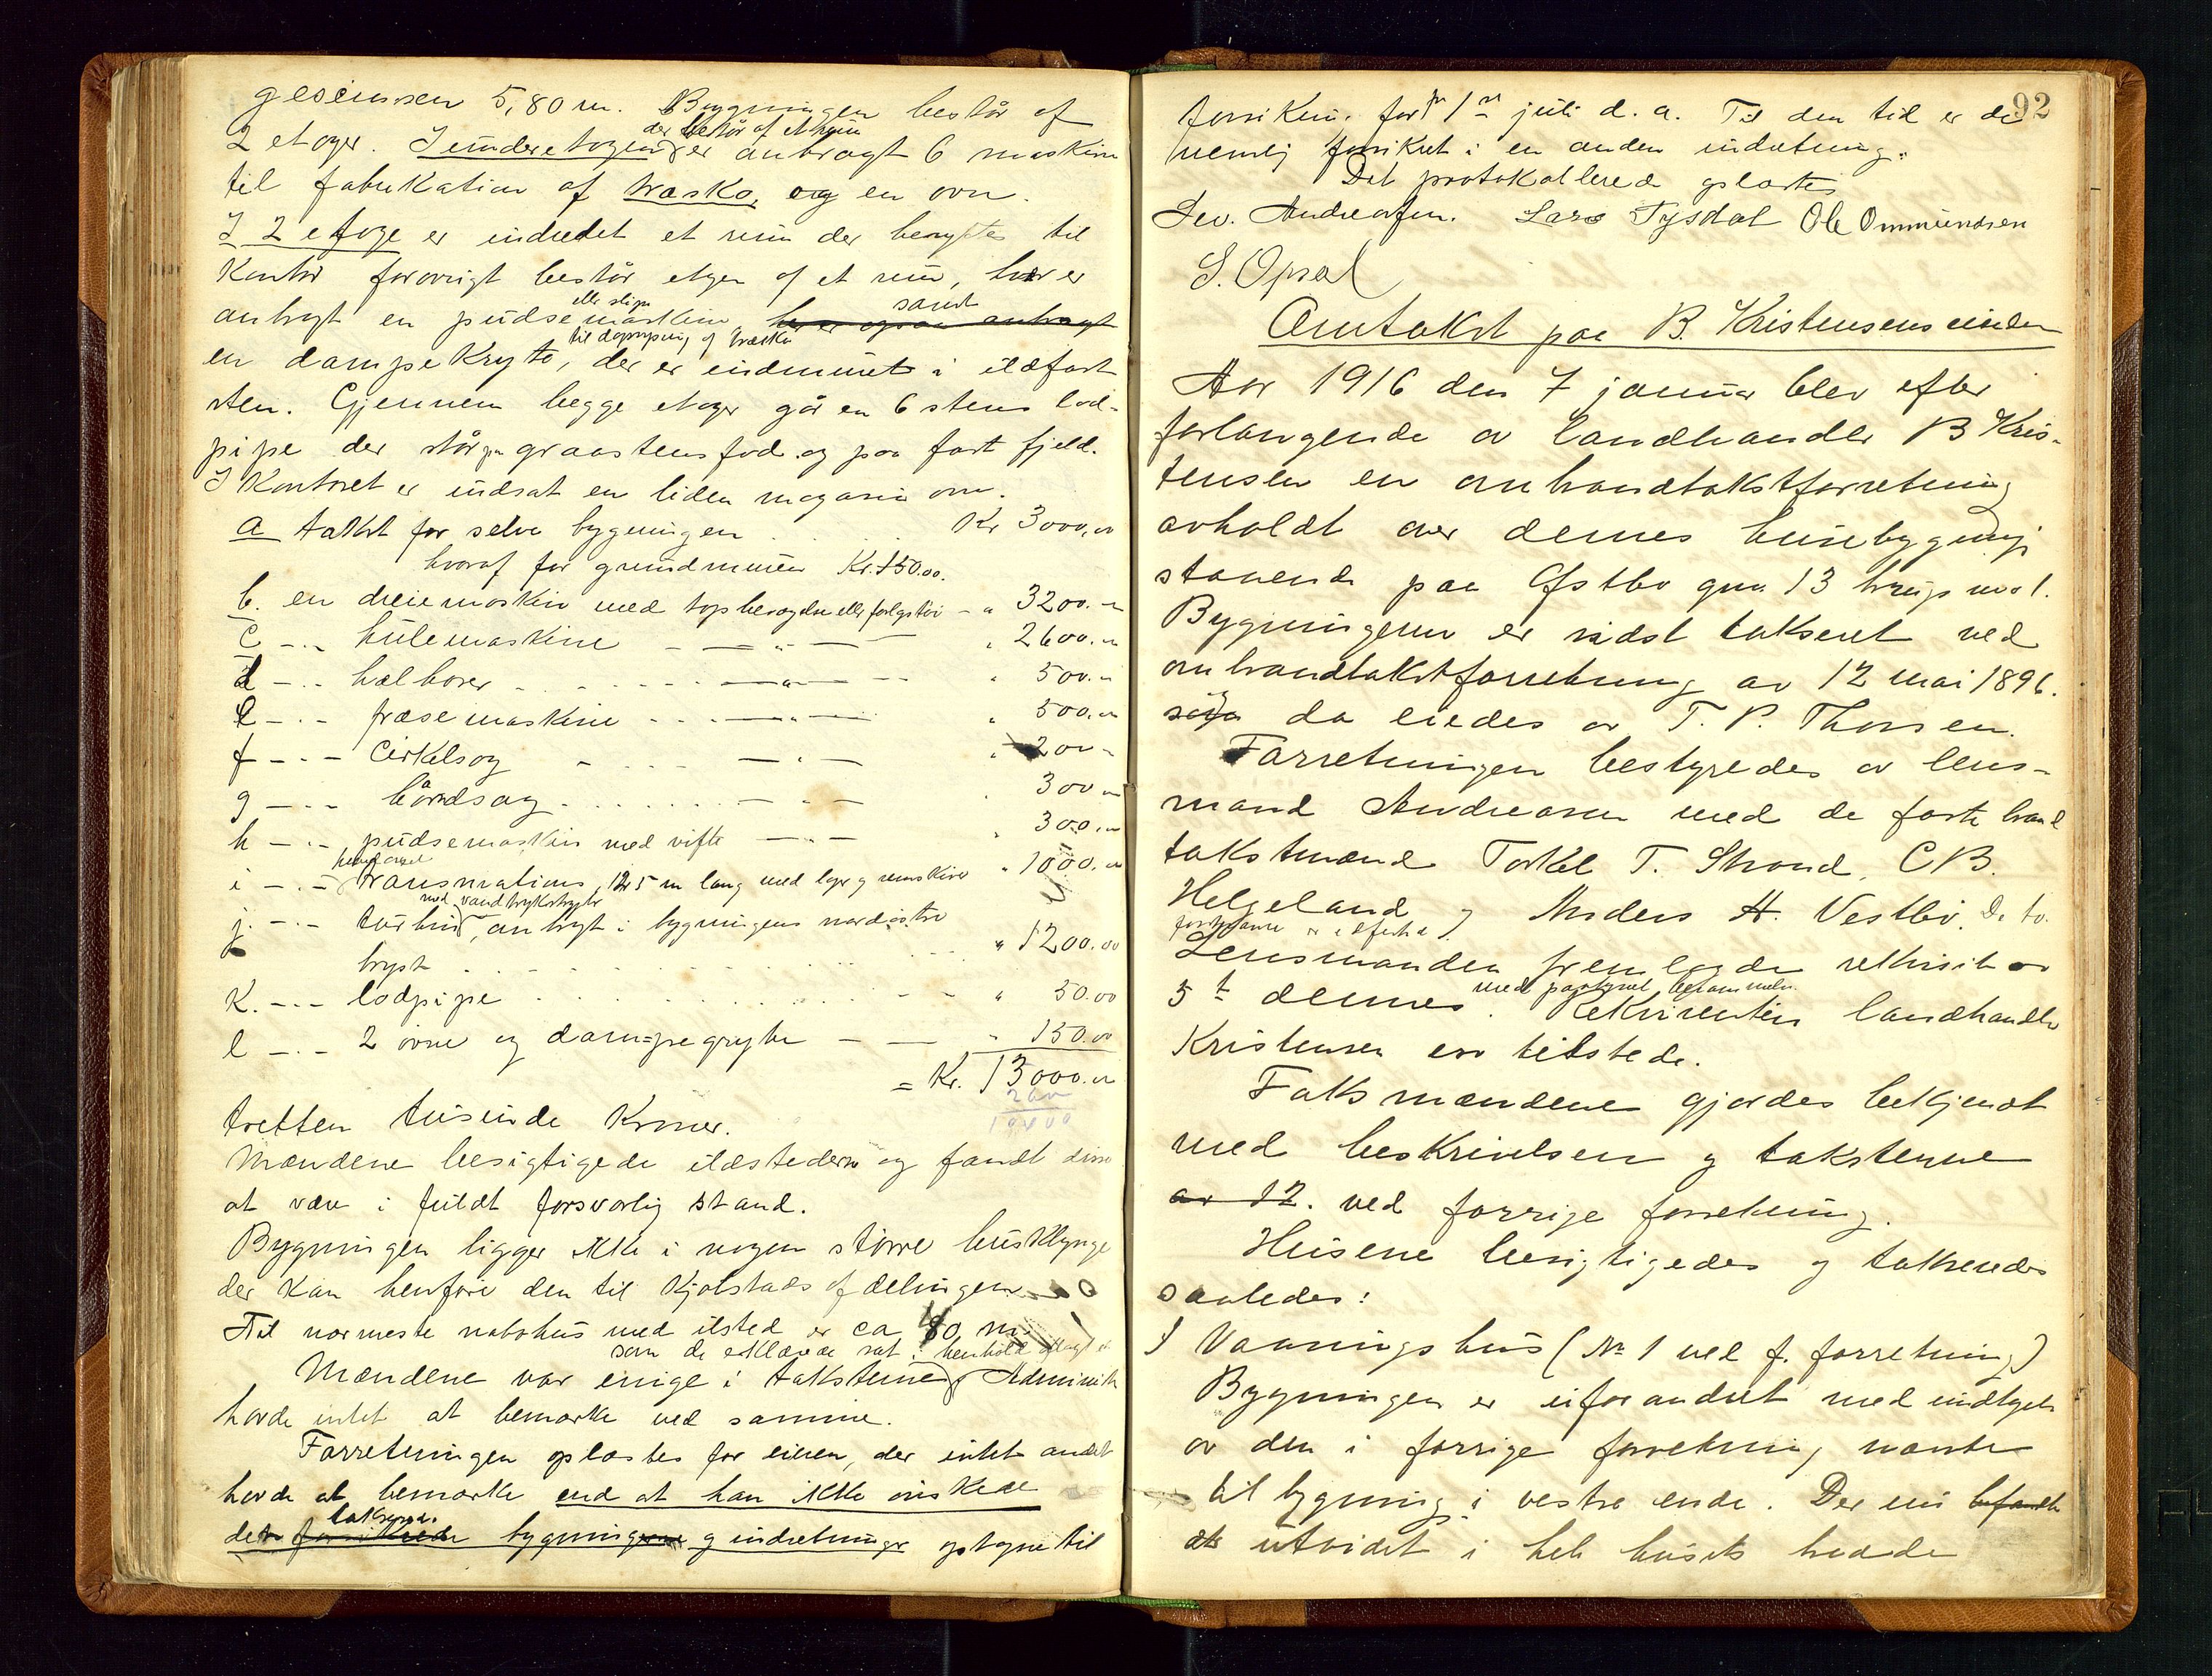 gesimsen 5,80 m. Bygningen består af
der består af et rum
2 etager. I underetagen er anbragt 6 maskin
til fabrikation af træsko, og en ovn.
I 2 etage er indredet et rum der benyttes til
Kontor forøvrigt består etagen af et rum, her er
eller slipe samt
anbragt en pudsemaskine her er ogsaa anbragt
til dampning af træsko
en dampekryte, der er indmuret i ildfast
sten. Gjennem begge etager går en 6 stens lod-
pipe der står paa graastensfod og paa fast fjeld.
I Kontoret er indsat en liden magasin ovn.
a takst for selve bygningen . . . Kr 3000,00
hvoraf for grundmuren Kr. 150.00.
b. en dreiemaskin med - " 3200.-
c - " - hulemaskine - " - " 2600.-
d - " - hælborer - " - " 500.-
e - " - fræsemaskine - " - " 500.-
f - " - Cirkelsag - " - " 200 -
g - " - båndsag - " - 300 -
h - " - pudsemaskin med vifte - " - " 300.-
i - " - transmation, 5 m lang med lager og remskiver " 1000.-
med vandtryksregulator
j. - " - turbin, anbragt i bygningens nordøstre
bryst " 1200.00
K. - " - lodpipe " 50.00
l - " - 2 ovne og dampegryte - " 150.00
= Kr. 13000.00
tretten tusinde Kroner.
Mændene besigtigede ildstederne og fandt disse
at være i fuldt forsvarlig stand.
Bygningen ligger ikke i nogen større husklynge
der kan henføre den til Kjøbstads afdelingen
Til nærmeste nabohus med ildsted er ca 80 m.
som de erklærede sat i henhold
Mændene var enige i taksterne. Adminis
havde intet at bemærke ved samme.
Forretningen oplæstes for eieren, der intet andet
havde at bemærke end at han ikke ønskede
takserede
den forsikrede bygning og indretninger optagne til
92
forsikring før 1ste juli d. a. Til den tid er de
nemlig forsikret i en anden indretning.
Det protokollerede oplæstes
Sev. Andreassen. Lars Tysdal Ole Ommundsen
S. Opsal
Omtakst paa B. Kristensens eiendom
Aar 1916 den 7 januar blev efter
forlangende av landhandler B Kris-
tensen en ombrandtakstforretning
avholdt over dennes husbygning
staaende paa Østbø gnr. 13 brugs no 1.
Bygningerne er sidst takseret ved
ombrandtakstforretning av 12 mai 1896.
da eiedes av T. P. Thorsen.
Forretningen bestyredes av lens-
mand Andreasen med de faste brand
takstmænd Torkel T. Strand, C B.
Helgeland og Anders H. Vestbø. De to
Lensmanden fremlagde rekvisit av
5t dennes. Rekvirenten landhandler
Kristensen var tilstede.
Taksmændene gjordes bekjendt
med beskrivelsen og taksterne
av 12. ved forrige forretning.
Husene besigtigedes og takseredes
saaledes:
1 Vaaningshus (No 1 ved f. forretning)
Bygningen er uforandret med undtagelse
av den i forrige forretning nævnte
tilbygning i vestre ende. Der nu befandtes
utvidet i hele husets bredde